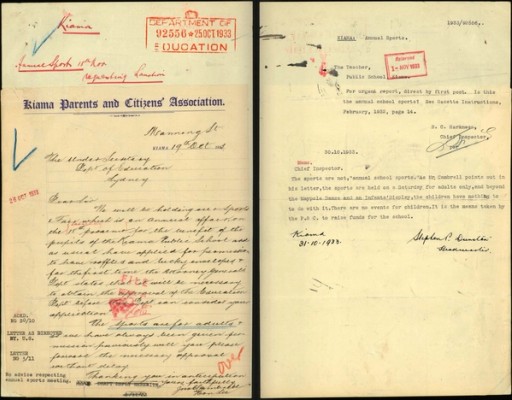 Kiama
DEPARTMENT OF
92556 * 25 OCT 1933
EDUCATION
Annual Sports 18th Nov.
Kiama Parents and Citizens' Association.
Manning St
KIAMA, 19th Oct
The Under Secretary
Dept. of Education
Sydney
Dear Sir
We will be holding a Sports
which is an annual affair on
the 18th for the benefit of the
pupils of the Kiama Public School and
as usual have applied for permission
to have raffles and lucky envelopes &
for the first time the
Dept states that it will be necessary
to obtain the approval of the Education
Dept before can consider your
application
The Sports are for adults &
as we have always been given per-
mission previously will you please
favour the necessary approval
without delay.
Thanking you in anticipation
Yours faithfully
Hon Sec
over
26 OCT 1933
ACKD.
NO 26/10
LETTER AS DIRECTED
BY. U.S.
LETTER
NO 3/11
No advice respecting
annual sports meeting.
KIAMA: Annual Sports.
The Teacher,
Public School, Kiama.
For urgent report, direct by first post. Is this
the annual school sports? See Gazette Instructions,
February, 1932, page 14.
Chief Inspector.
30.10.1933.
Chief Inspector.
The sports are not annual school sports. As Mr Gumbrell points out in
his letter, the sports are held on a Saturday for adults only, and beyond
the Maypole Dance and an Infants' Display, the children have nothing to
to do with it. There are no events for children. It is the means taken by
the P.&C. to raise funds for the school.
Kiama
31-10-1933.
Headmaster.